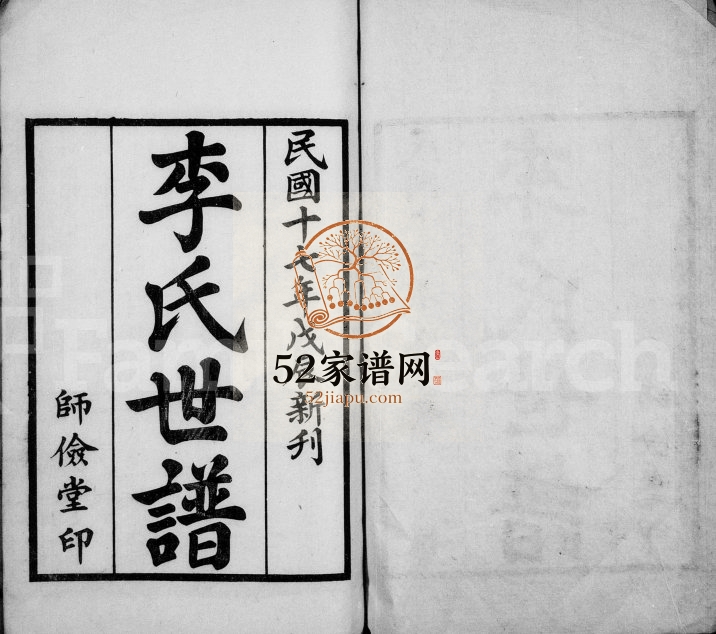 民國十七年戊辰新刊
李氏世譜
師儉堂印
52家谱网
52jiapu.com